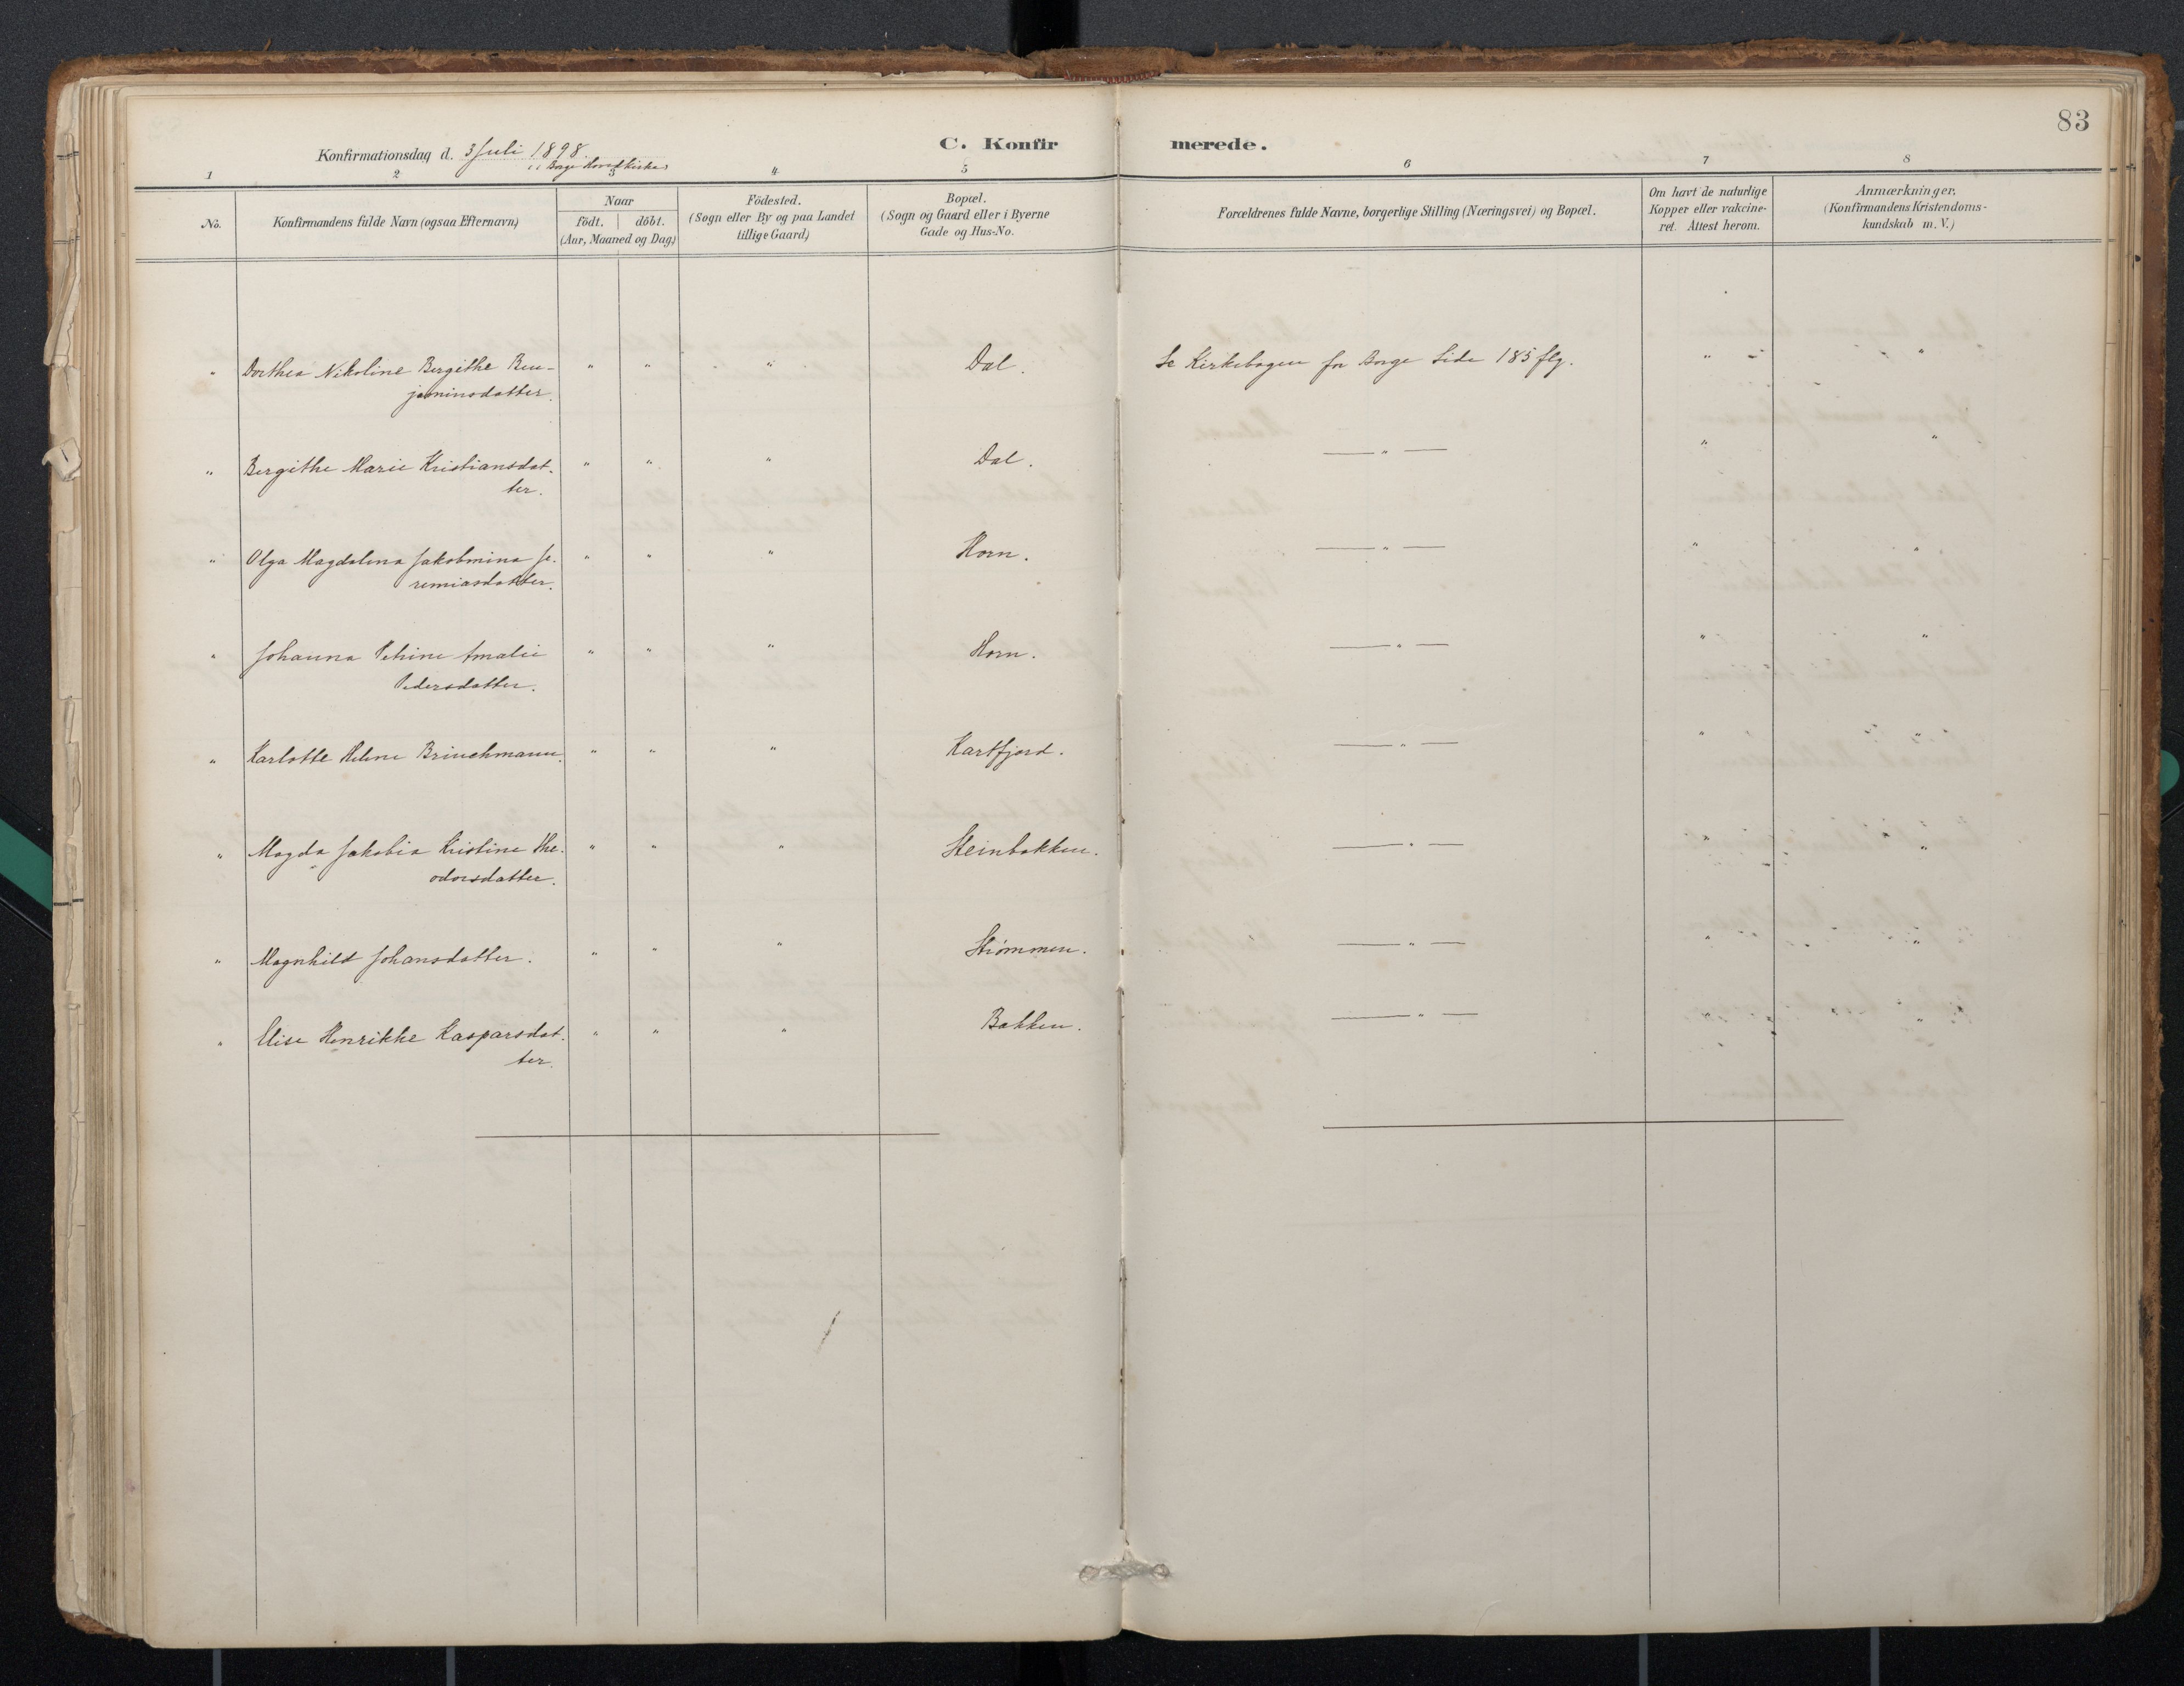 83
Konfirmationsdag d. 3 Juli 1898
i Borge Hovedkirke
C. Konfirmerede.
1 2 3 4 5 6 7 8
No.
Konfirmandens fulde Navn (ogsaa Efternavn)
Naar
födt. döbt.
(Aar, Maaned og Dag.)
Födested.
(Sogn eller By og paa Landet
tillige Gaard)
Bopæl.
(Sogn og Gaard eller i Byerne
Gade og Hus-No.
Forældrenes fulde Navne, borgerlige Stilling (Næringsvei) og Bopæl.
Om havt de naturlige
Kopper eller vakcine-
ret. Attest herom.
Anmærkninger.
(Konfirmandens Kristendoms-
kundskab m. V.)
" Dorthea Nikoline Bergithe Ben- " " " Dal. Se Kirkebogen for Borge Side 185 flg. " "
jaminsdatter.
" Bergithe Marie Kristiansdat- " " " Dal. — " — " "
ter.
" Olga Magdalena Jakobmina Je- " " " Horn. — " — " "
remiasdatter.
" Johanna Petrine Amalie " " " Horn. — " — " "
Pedersdatter.
" Karlotte Helene Brinchmann. " " " Kartfjord. — " — " "
" Magda Jakobia Kristine The- " " " Steinbakken. — " — " "
odorsdatter.
" Magnhild Johansdatter. " " " Strømmen. — " — " "
" Elise Henrikke Kasparsdat- " " " Bakken. — " — " "
ter.